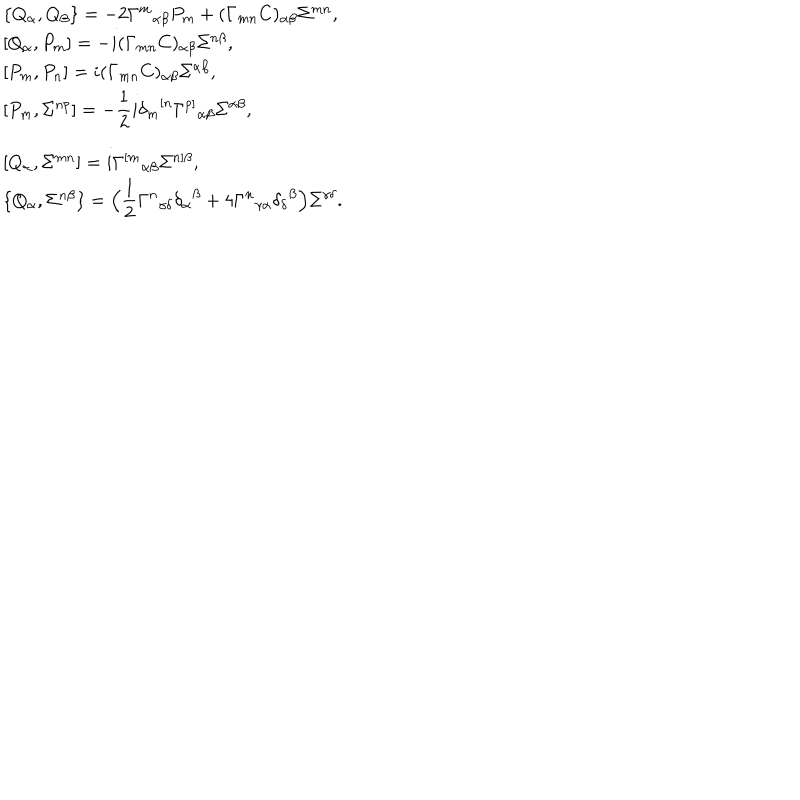 {Q_α, Q_β} = −2Γ^m_{αβ} P_m + (Γ_{mn}C)_{αβ} Σ^{mn},
[Q_α, P_m] = −i(Γ_{mn}C)_{αβ} Σ^{nβ},
[P_m, P_n] = i(Γ_{mn}C)_{αβ} Σ^{αβ},
[P_m, Σ^{np}] = −\frac{1}{2} iδ_m^{[n} Γ^{p]}_{αβ} Σ^{αβ},
[Q_α, Σ^{mn}] = iΓ^{[m}_{αβ} Σ^{n]β},
{Q_α, Σ^{nβ}} = (\frac{1}{2} Γ^n_{γδ} δ_α^β + 4Γ^n_{γα} δ_δ^β) Σ^{γδ}.